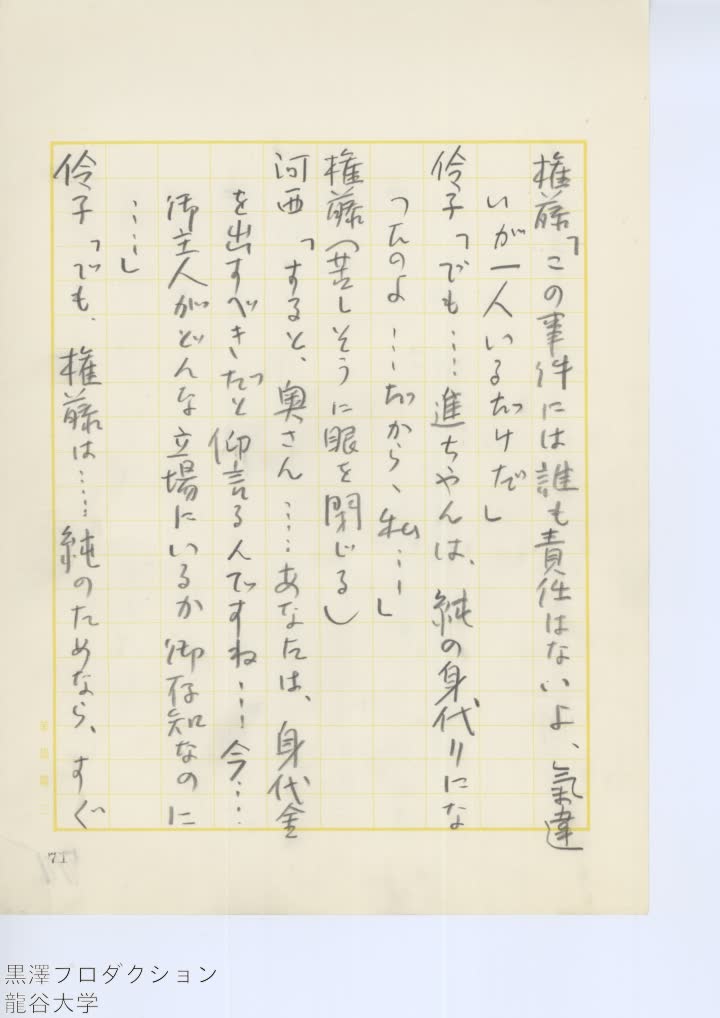 権藤「この事件には誰も責任はないよ、氣違
いが一人いるだけだ」
伶子「でも……進ちやんは、純の身代りにな
つたのよ……だから、私……」
権藤（苦しそうに眼を閉じる）
河西「すると、奥さん……あなたは、身代金
を出すべきだと仰言るんですね……今……
御主人がどんな立場にいるか御存知なのに
……」
伶子「でも、権藤は……純のためなら、すぐ
71
黒澤プロダクション
龍谷大学